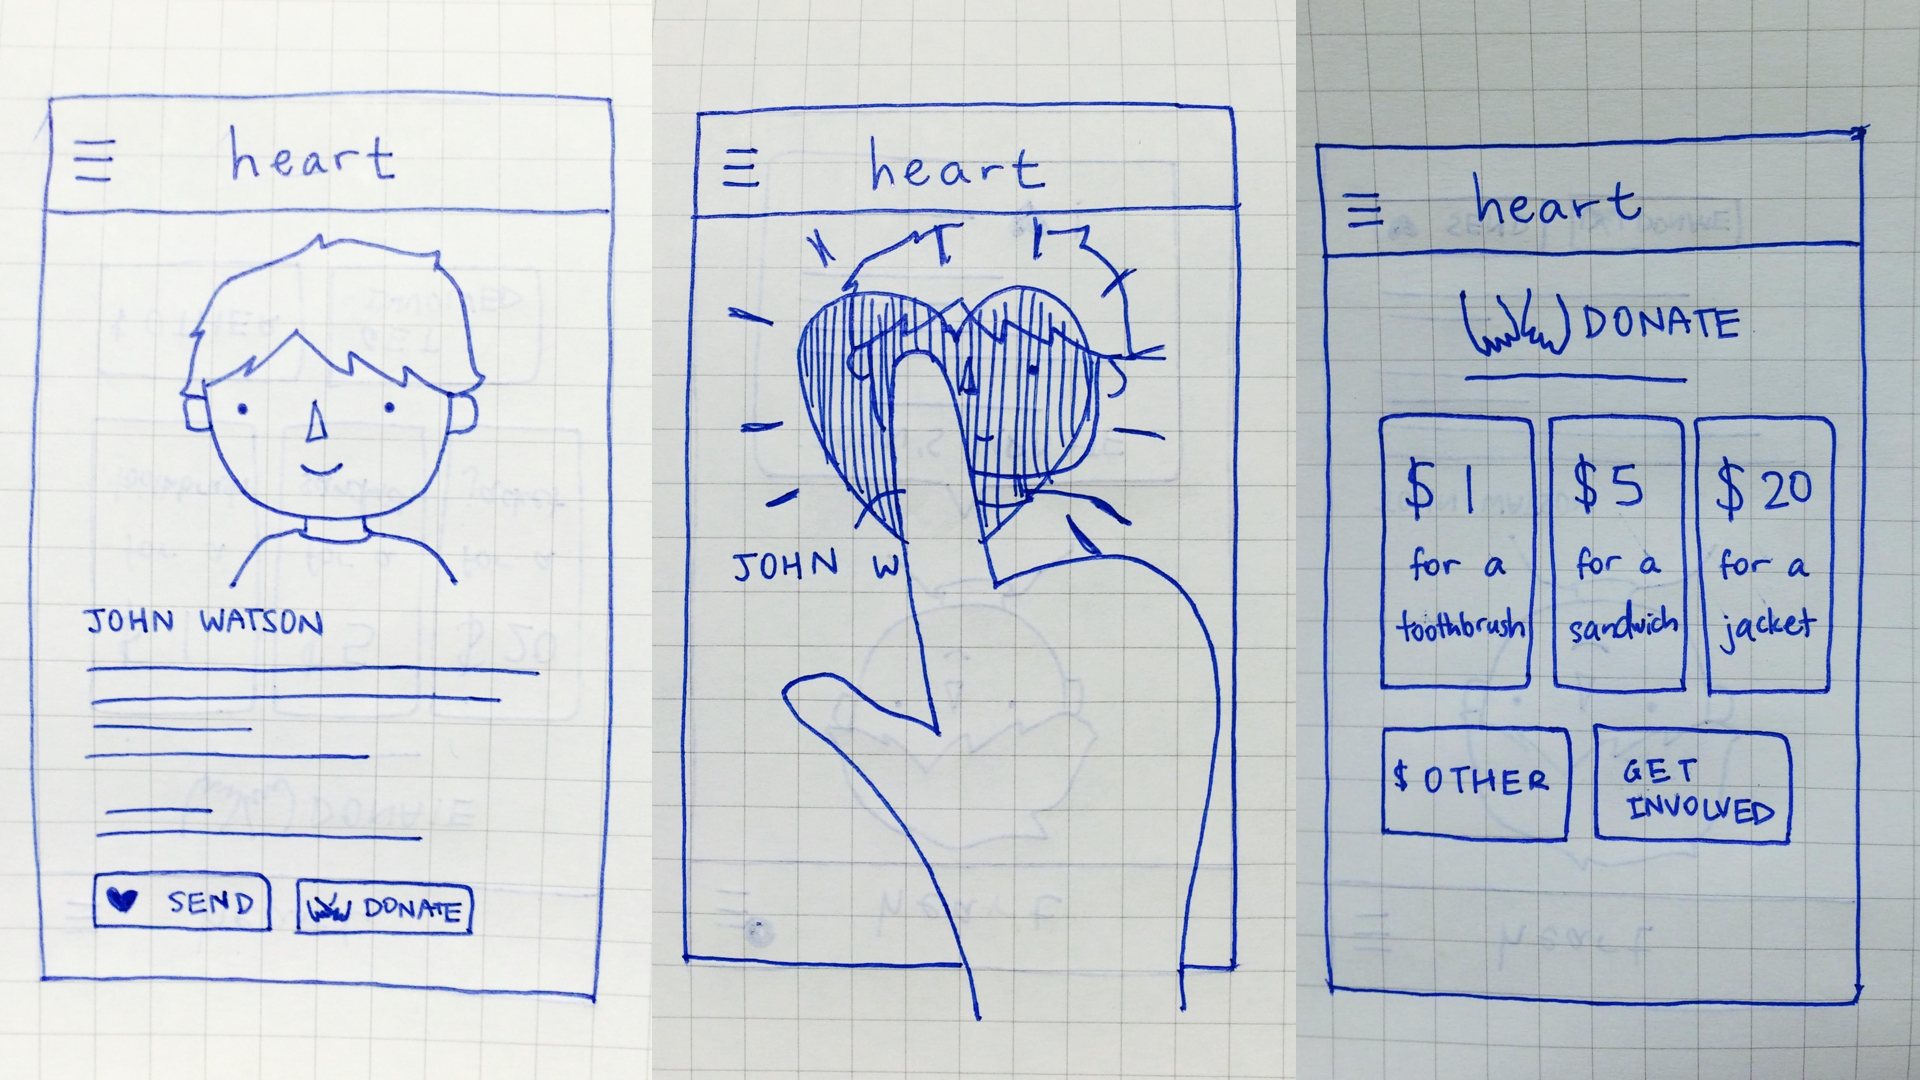 heart
JOHN WATSON
SEND
DONATE
heart
JOHN W
heart
DONATE
$1 for a toothbrush
$5 for a sandwich
$20 for a jacket
$ OTHER
GET
INVOLVED